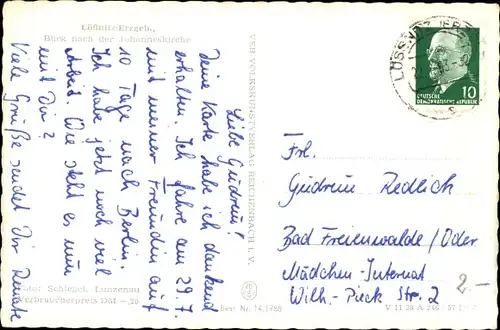 Lößnitz-Erzgeb.,
Blick nach der Johanneskirche
Liebe Gudrun!
Deine Karte habe ich dankend
erhalten. Ich fahre am 29.7.
mit meiner Freundin auf
10 Tage nach Berlin.
Ich habe jetzt noch viel
Arbeit. Wie steht es nun
mit Dir?
Viele Grüße sendet Dir Renate
Foto: Schlegel, Lunzenau
Verbraucherpreis DM
VEB VOLKSKUNSTVERLAG REICHENBACH I. V.
Best. Nr. 14.1788
10
DEUTSCHE
DEMOKRATISCHE REPUBLIK
Frl.
Gudrun Redlich
Bad Freienwalde/Oder
Mädchen-Internat
Wilh.-Pieck Str. 2
2.-
V 11 28 A